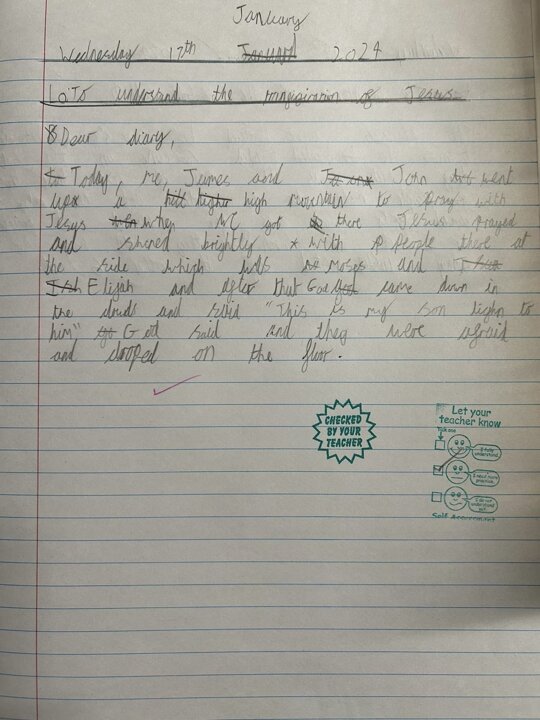 January
Wednesday 17th January 2024
LO:To understand the transfiguration of Jesus
Dear diary,
Today, me, James and John went
up a high mountain to pray with
Jesus when we got there Jesus prayed
and shined brightly with people there at
the side which was Moses and
Elijah and after that God came down in
the clouds and said "This is my son lighn to
him" God said and they were afraid
and droped on the floor.
CHECKED
BY YOUR
TEACHER
Let your
teacher know
Tick one
I fully
understand.
I need more
practice.
I do not
understand
yet.
Self Assessment